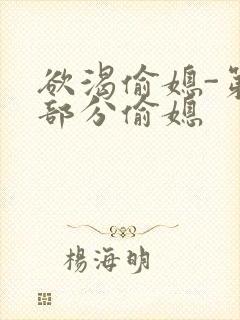 欲渴偷媳-第
部分偷媳
楊海明